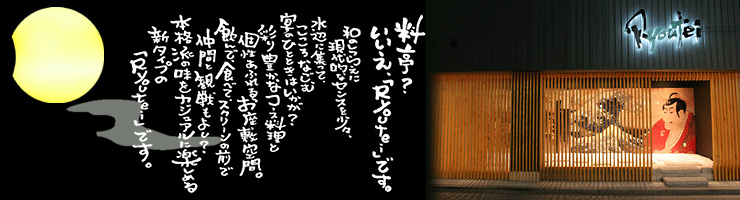 料亭?
いいえ、「Ryutei」です。
和とらった
現代的なセンスを少々、
水辺に集って、
こころなごむ
宴のひとときはいかが?
彩り豊かなコース料理と
個性あふれるお座敷空間。
飲んで、食べて、スクリーンの前で
仲間と観戦もよし?
本格派の味をカジュアルに楽しめる
新タイプの
「Ryutei」です。
Ryoutei